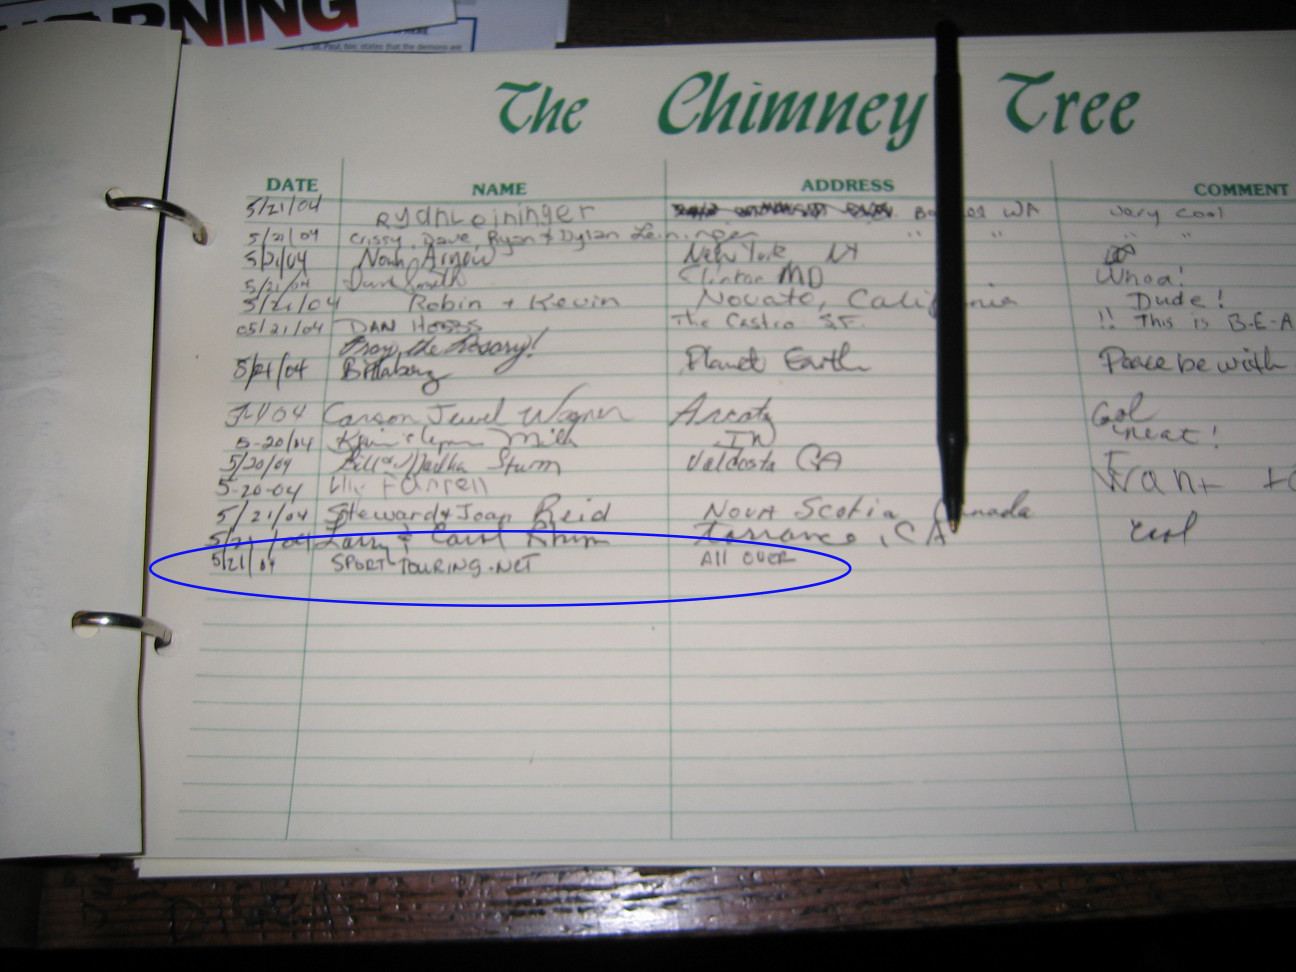 WARNING
St. Paul, too, states that the demons are
The Chimney Tree
DATE NAME ADDRESS COMMENT
5/21/04 Ryan Leininger WA very cool
5/21/04 Crissy, Dave, Ryan & Dylan Leininger " " " "
5/21/04 Noah New York, NY
5/21/04 Smith Clinton MD Whoa!
5/21/04 Robin + Kevin Novato, California Dude!
05/21/04 DAN The Castro S.F. !! This is B-E-A
Pray the Rosary!
5/21/04 Planet Earth Peace be with
04 Carson Jewel Wagner Arcata Cool
5-20/04 IN Great!
5/20/04 Sturm Valdosta GA I
5-20-04 Farrell Want to
5/21/04 Steward & Joan Reid NOVA Scotia Canada
5/21/04 Larry & Carol Torrance, CA cool
5/21/04 SPORT-TOURING.NET All OVER